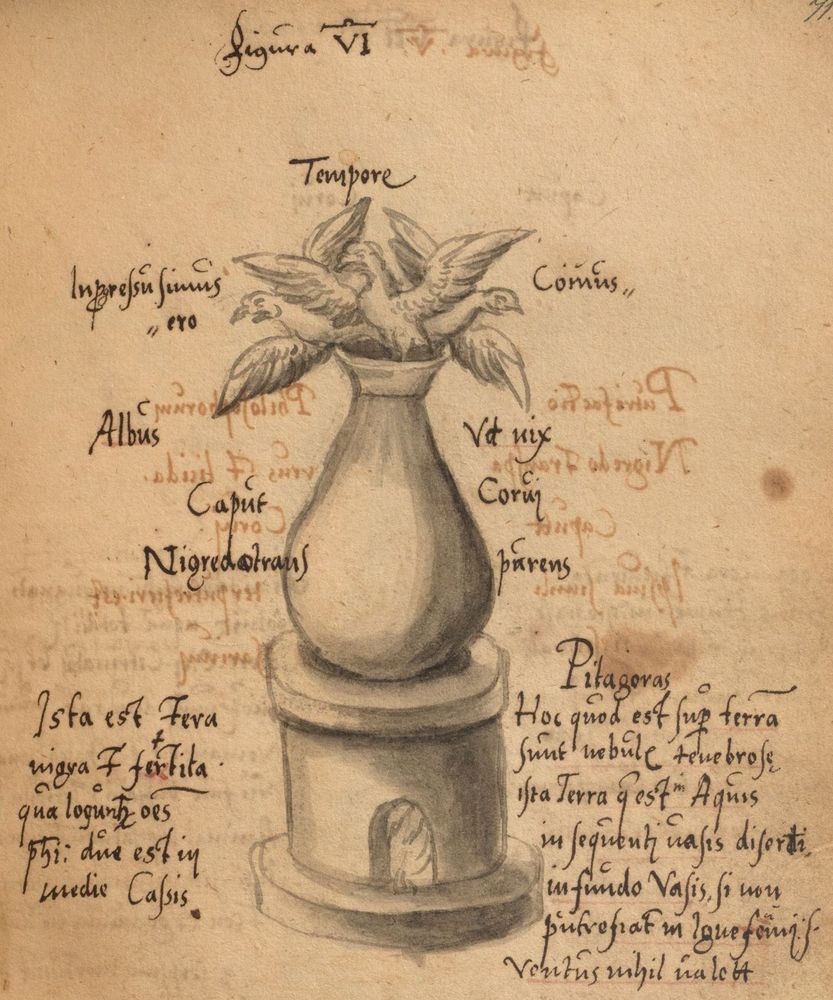 figura VI
71
Tempore
Inpressu simus
Comus
ero
Albus
Vt nix
Caput
Corvi
Nigredo trans
parens
Pitagoras
Ista est Tera
nigra & fertita
qua loqunt oes
phi: due est in
medie Cassis
Hoc quod est sup terra
sunt nebule tenebrose
ista Terra q est in Aquis
in sequenti vasis
in fundo Vasis, si non
putrefiat in Igne
Ventus nihil valett